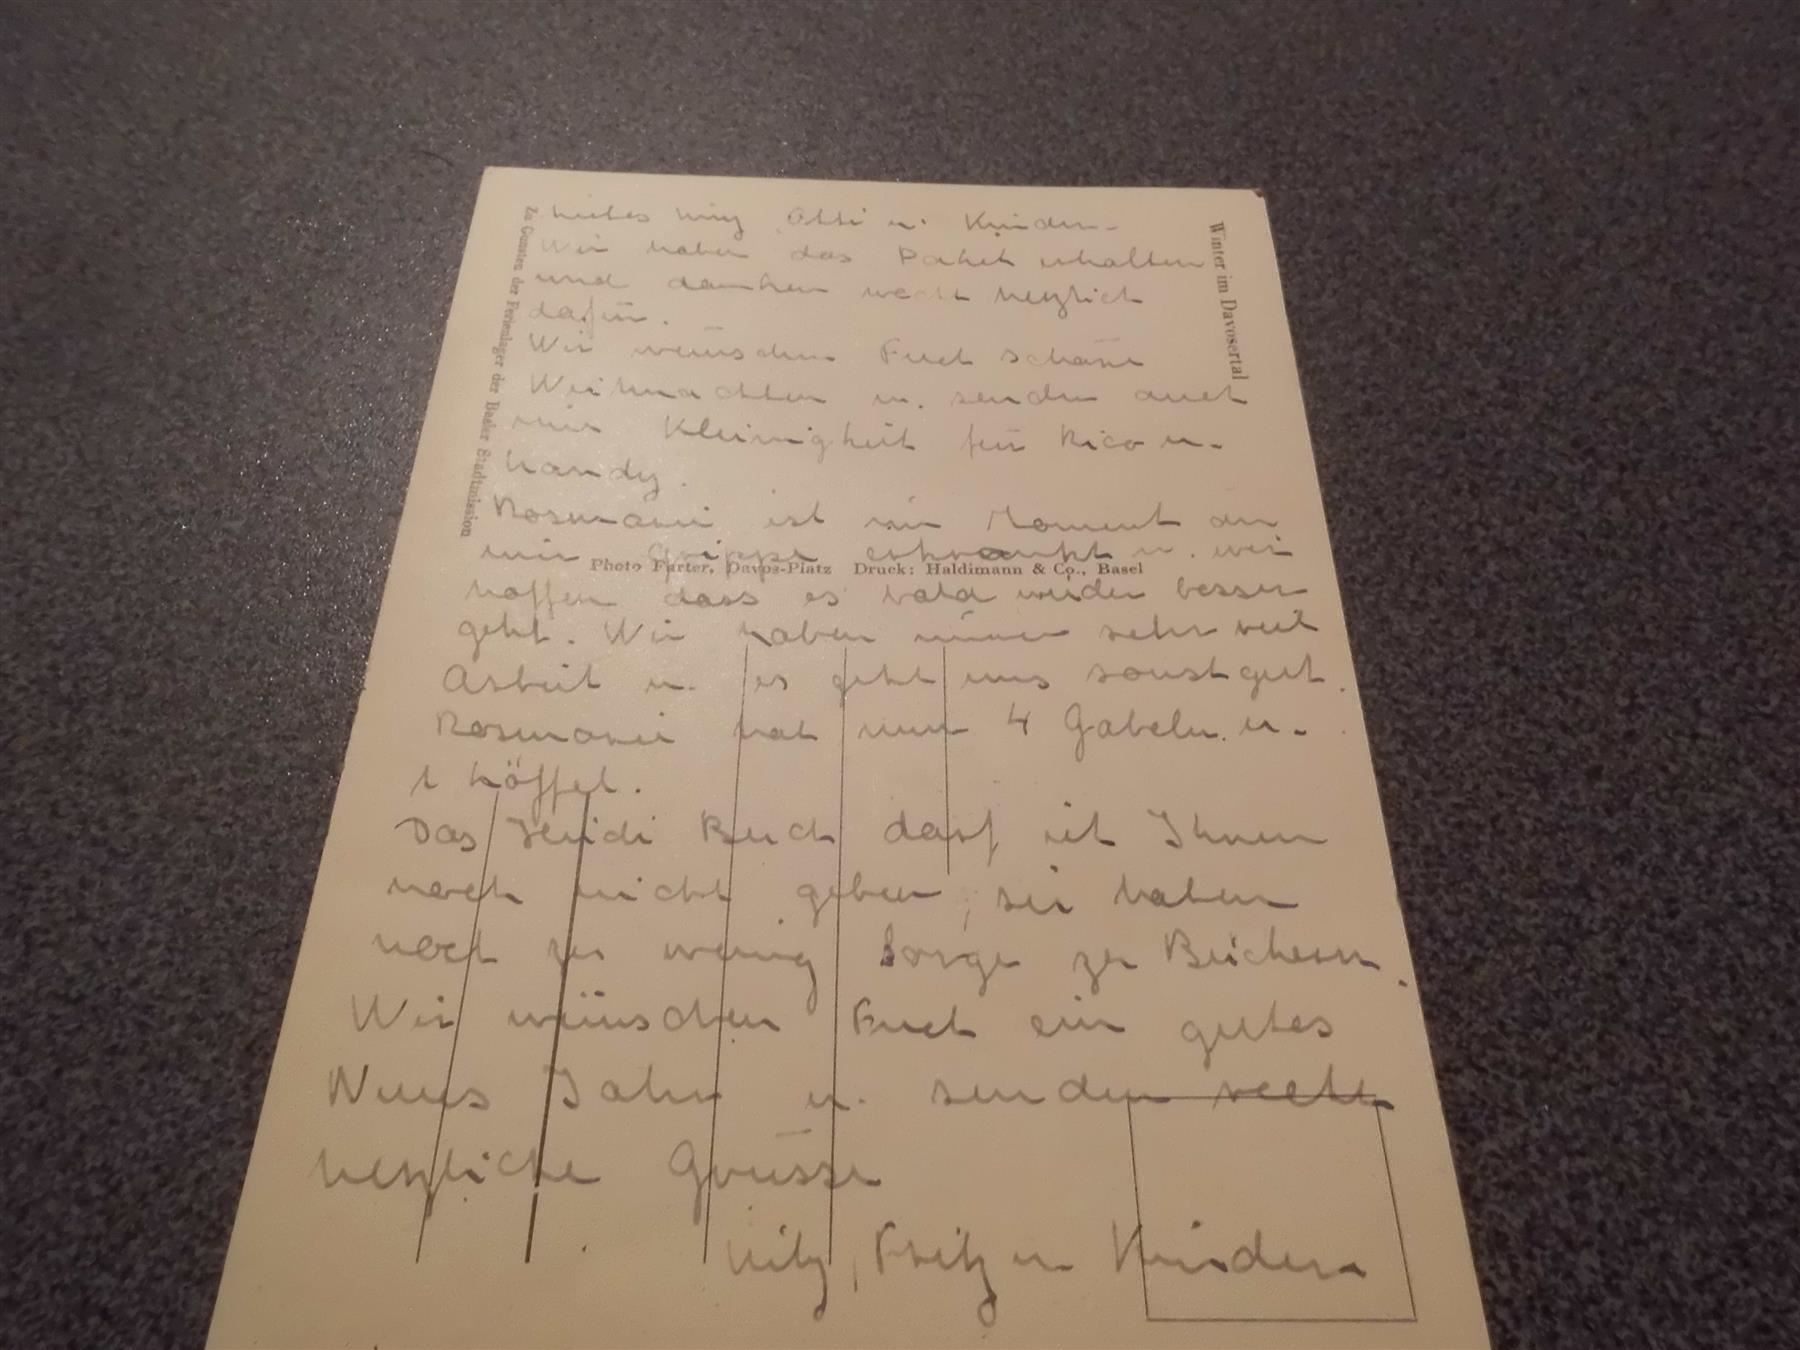 Liebes Miny Otti u. Kinder.
Wir haben das Paket erhalten
und danken recht herzlich
dafür.
Wir wünschen Euch schöne
Weihnachten u. senden auch
eine Kleinigkeit für Rico u.
Handy.
Rosmarie ist im Moment an
einer Grippe erkrankt u. wir
hoffen dass es bald wieder besser
geht. Wir haben immer sehr viel
Arbeit u. es geht uns sonst gut.
Rosmarie hat nun 4 Gabeln u.
1 Löffel.
Das Heidi Buch darf ich Ihnen
noch nicht geben, sie haben
noch zu wenig Sorge zu Büchern.
Wir wünschen Euch ein gutes
Neues Jahr u. senden recht
herzliche Grüsse
Fritz u Kinder
Zu Gunsten der Ferienlager der Basler Stadtmission
Winter im Davosertal
Photo Furter, Davos-Platz Druck: Haldimann & Co., Basel